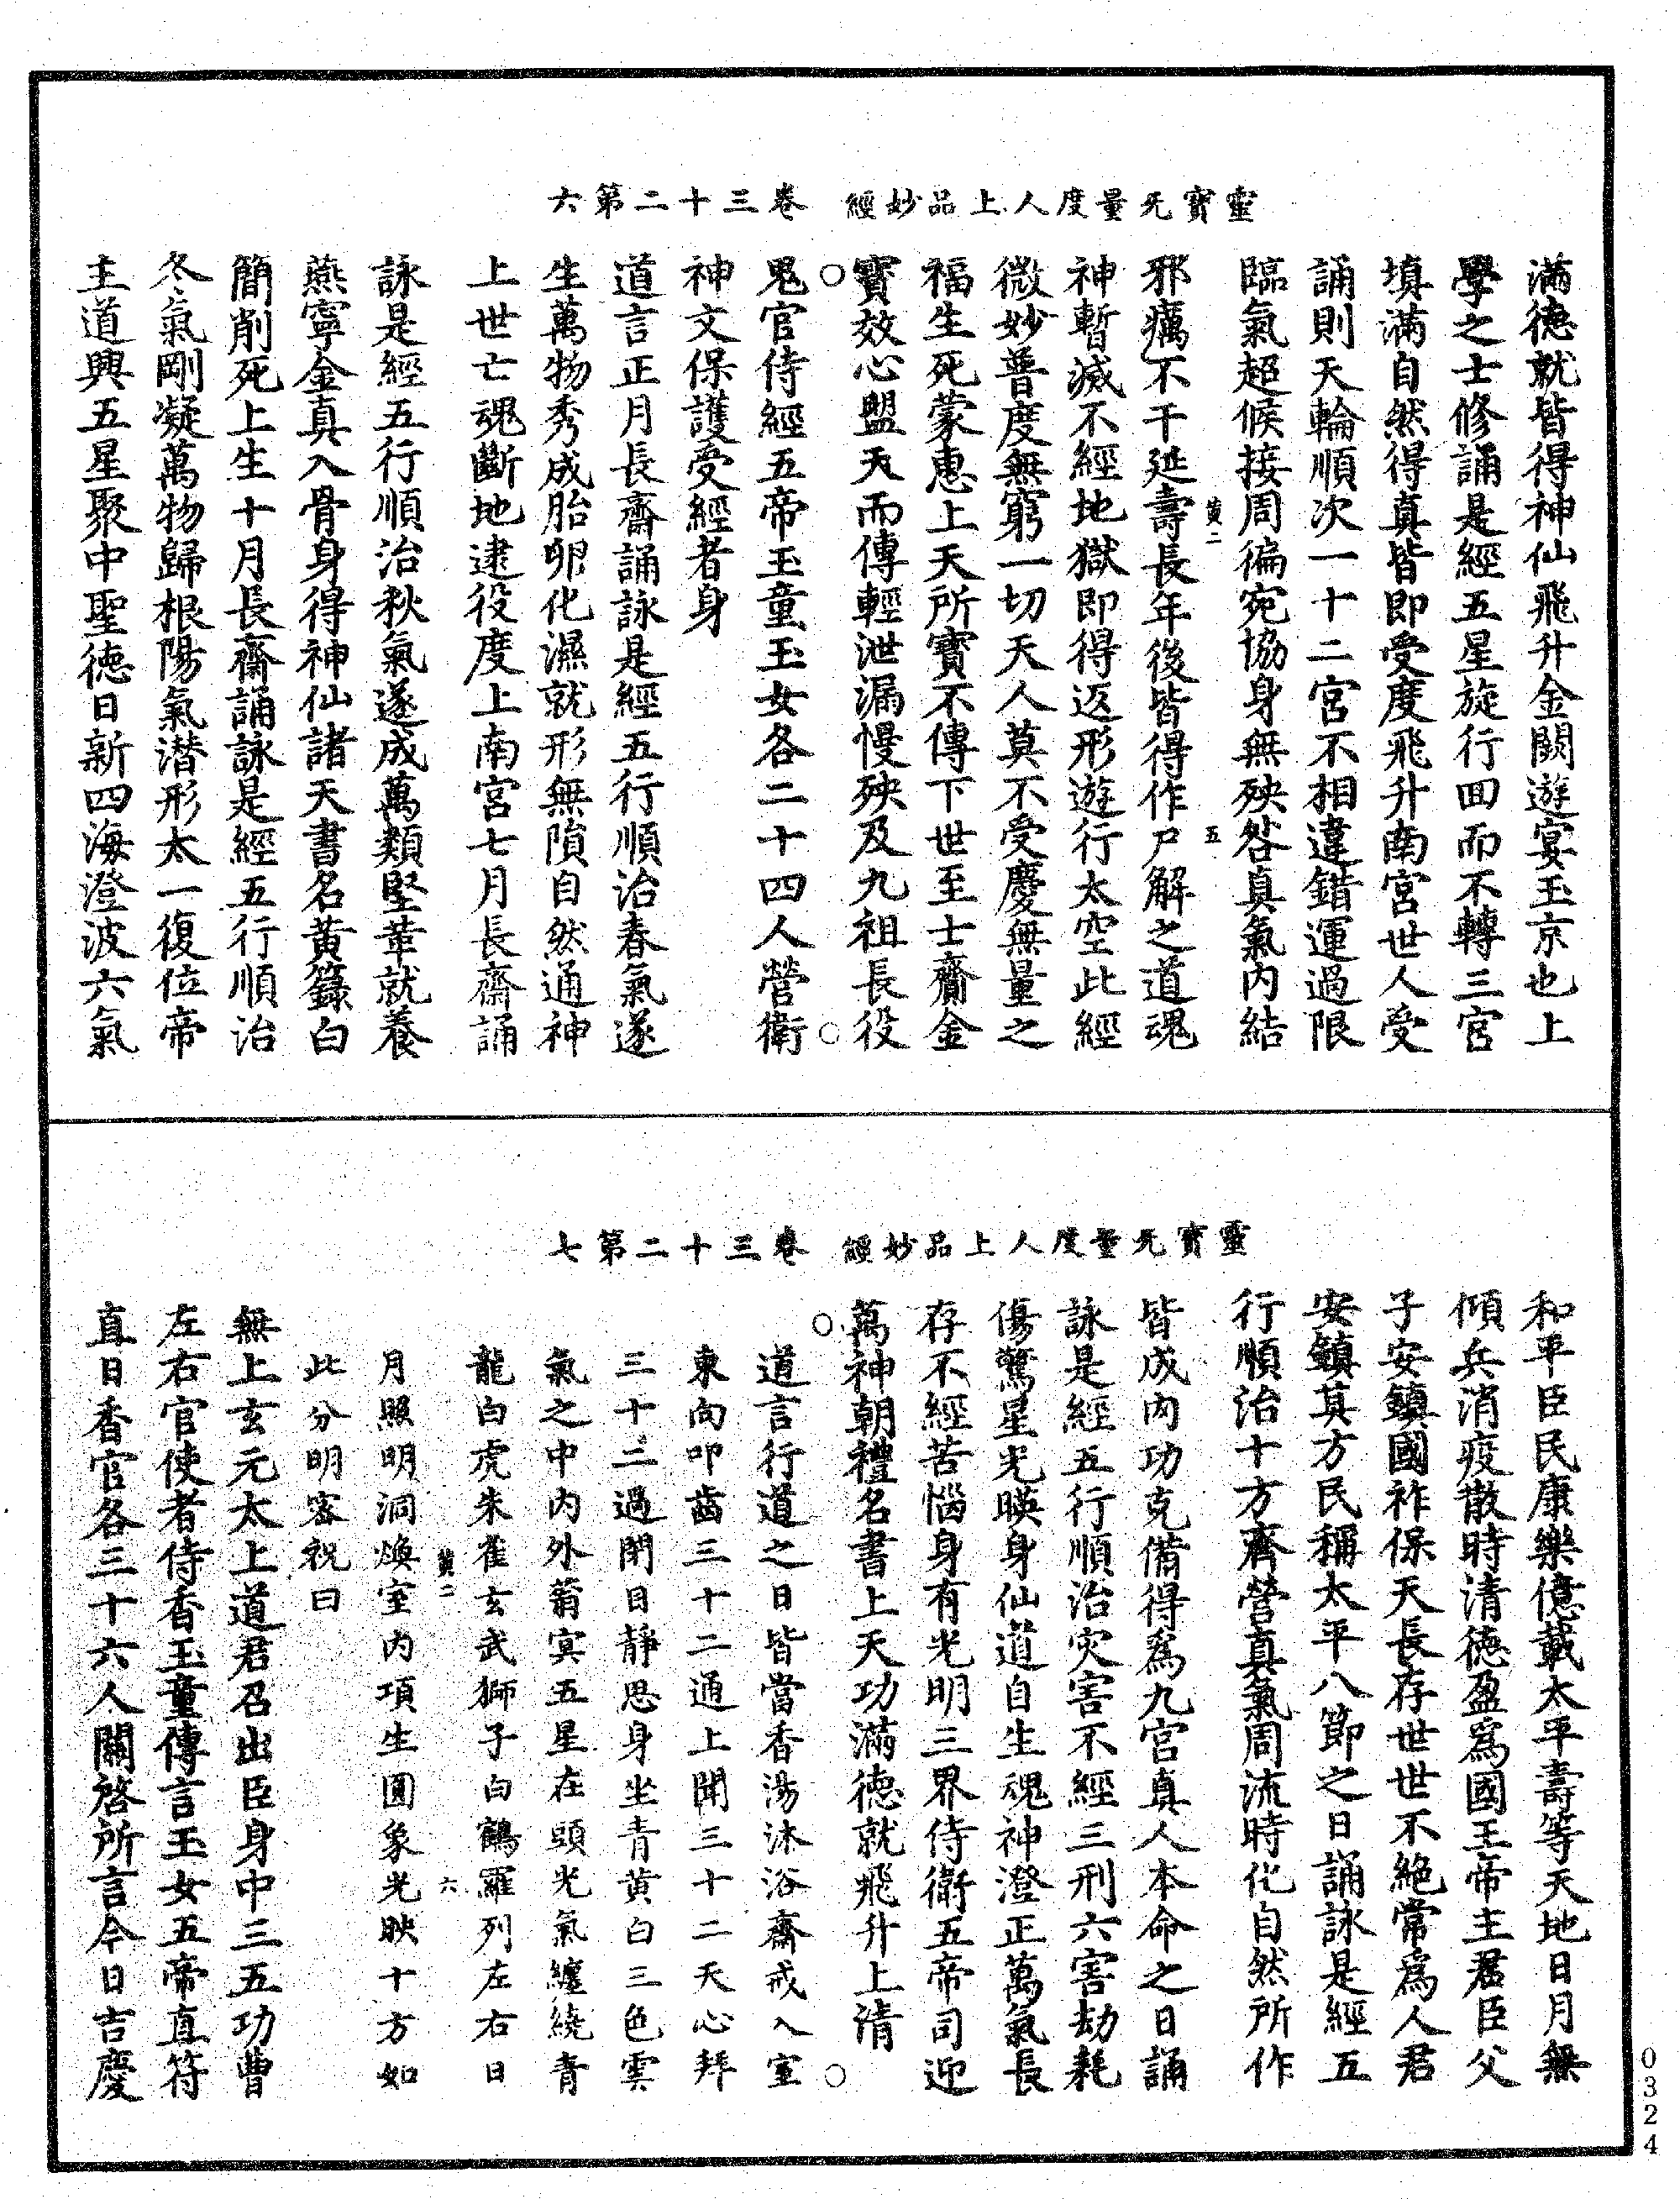 靈寶无量度人上品妙經 卷三十二第六
滿德就皆得神仙飛升金闕遊宴玉京也上
學之士修誦是經五星旋行回而不轉三宮
填滿自然得真皆即受度飛升南宮世人受
誦則天輪順次一十二宮不相違錯運過限
臨氣超候接周徧宛協身無殃咎真氣內結
黃二 五
邪癘不干延壽長年後皆得作尸解之道魂
神暫滅不經地獄即得返形遊行太空此經
微妙普度無窮一切天人莫不受慶無量之
福生死蒙惠上天所寶不傳下世至士齎金
寶效心盟天而傳輕泄漏慢殃及九祖長役
○ ○
鬼官侍經五帝玉童玉女各二十四人營衛
神文保護受經者身
道言正月長齋誦詠是經五行順治春氣遂
生萬物秀成胎卵化濕就形無隕自然通神
上世亡魂斷地逮役度上南宮七月長齋誦
詠是經五行順治秋氣遂成萬類堅革就養
燕寧金真入骨身得神仙諸天書名黃籙白
簡削死上生十月長齋誦詠是經五行順治
冬氣剛凝萬物歸根陽氣潛形太一復位帝
主道興五星聚中聖德日新四海澄波六氣
靈寶无量度人上品妙經 卷三十二第七
和平臣民康樂億載太平壽等天地日月無
傾兵消疫散時清德盈為國王帝主君臣父
子安鎮國祚保天長存世世不絕常為人君
安鎮其方民稱太平八節之日誦詠是經五
行順治十方齊營真氣周流時化自然所作
皆成內功克備得為九宮真人本命之日誦
詠是經五行順治灾害不經三刑六害劫耗
傷驚星光暎身仙道自生魂神澄正萬氣長
存不經苦惱身有光明三界侍衛五帝司迎
萬神朝禮名書上天功滿德就飛升上清
○ ○
道言行道之日皆當香湯沐浴齋戒入室
東向叩齒三十二通上聞三十二天心拜
三十二過閉目靜思身坐青黃白三色雲
氣之中內外蓊冥五星在頭光氣纏繞青
龍白虎朱雀玄武獅子白鶴羅列左右日
黃二 六
月照明洞煥室內項生圓象光映十方如
此分明密祝曰
無上玄元太上道君召出臣身中三五功曹
左右官使者侍香玉童傳言玉女五帝直符
直日香官各三十六人關啓所言今日吉慶
0324